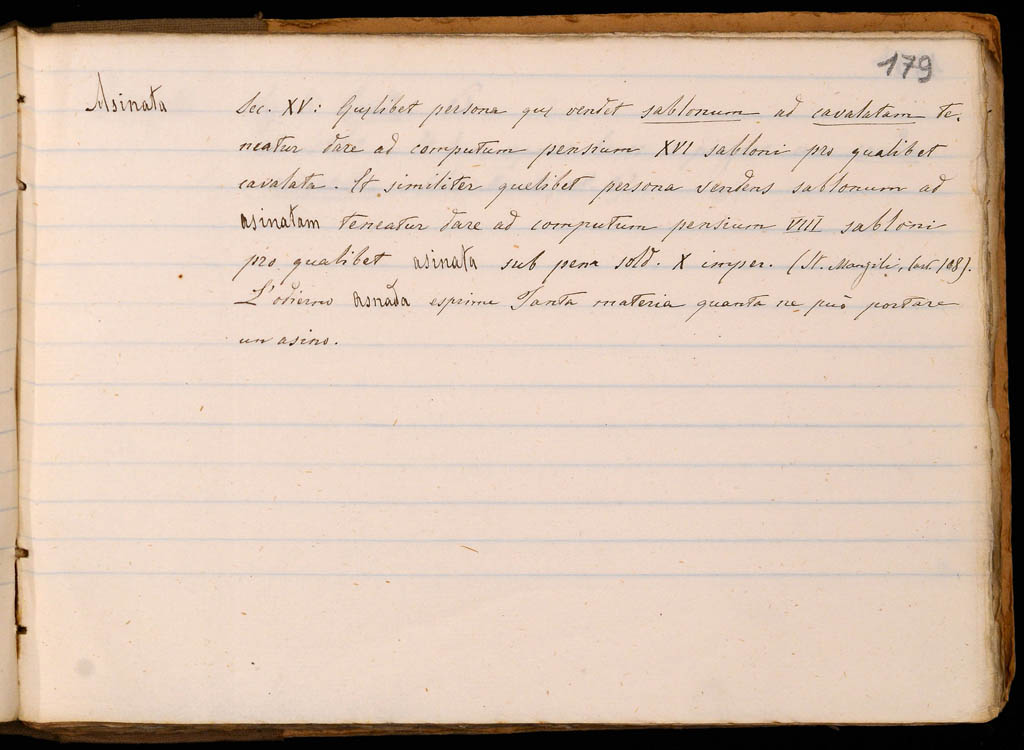 179
Asinata
Sec. XV: Quelibet persona que vendet sablonum ad cavalatam te-
neatur dare ad computum pensium XVI sabloni pro qualibet
cavalata. Et similiter quelibet persona vendens sablonum ad
asinatam teneatur dare ad computum pensium VIII sabloni
pro qualibet asinata sub pena sold. X imper. (St. 108).
L'odierno asnada esprime Tanta materia quanta ne può portare
un asino.